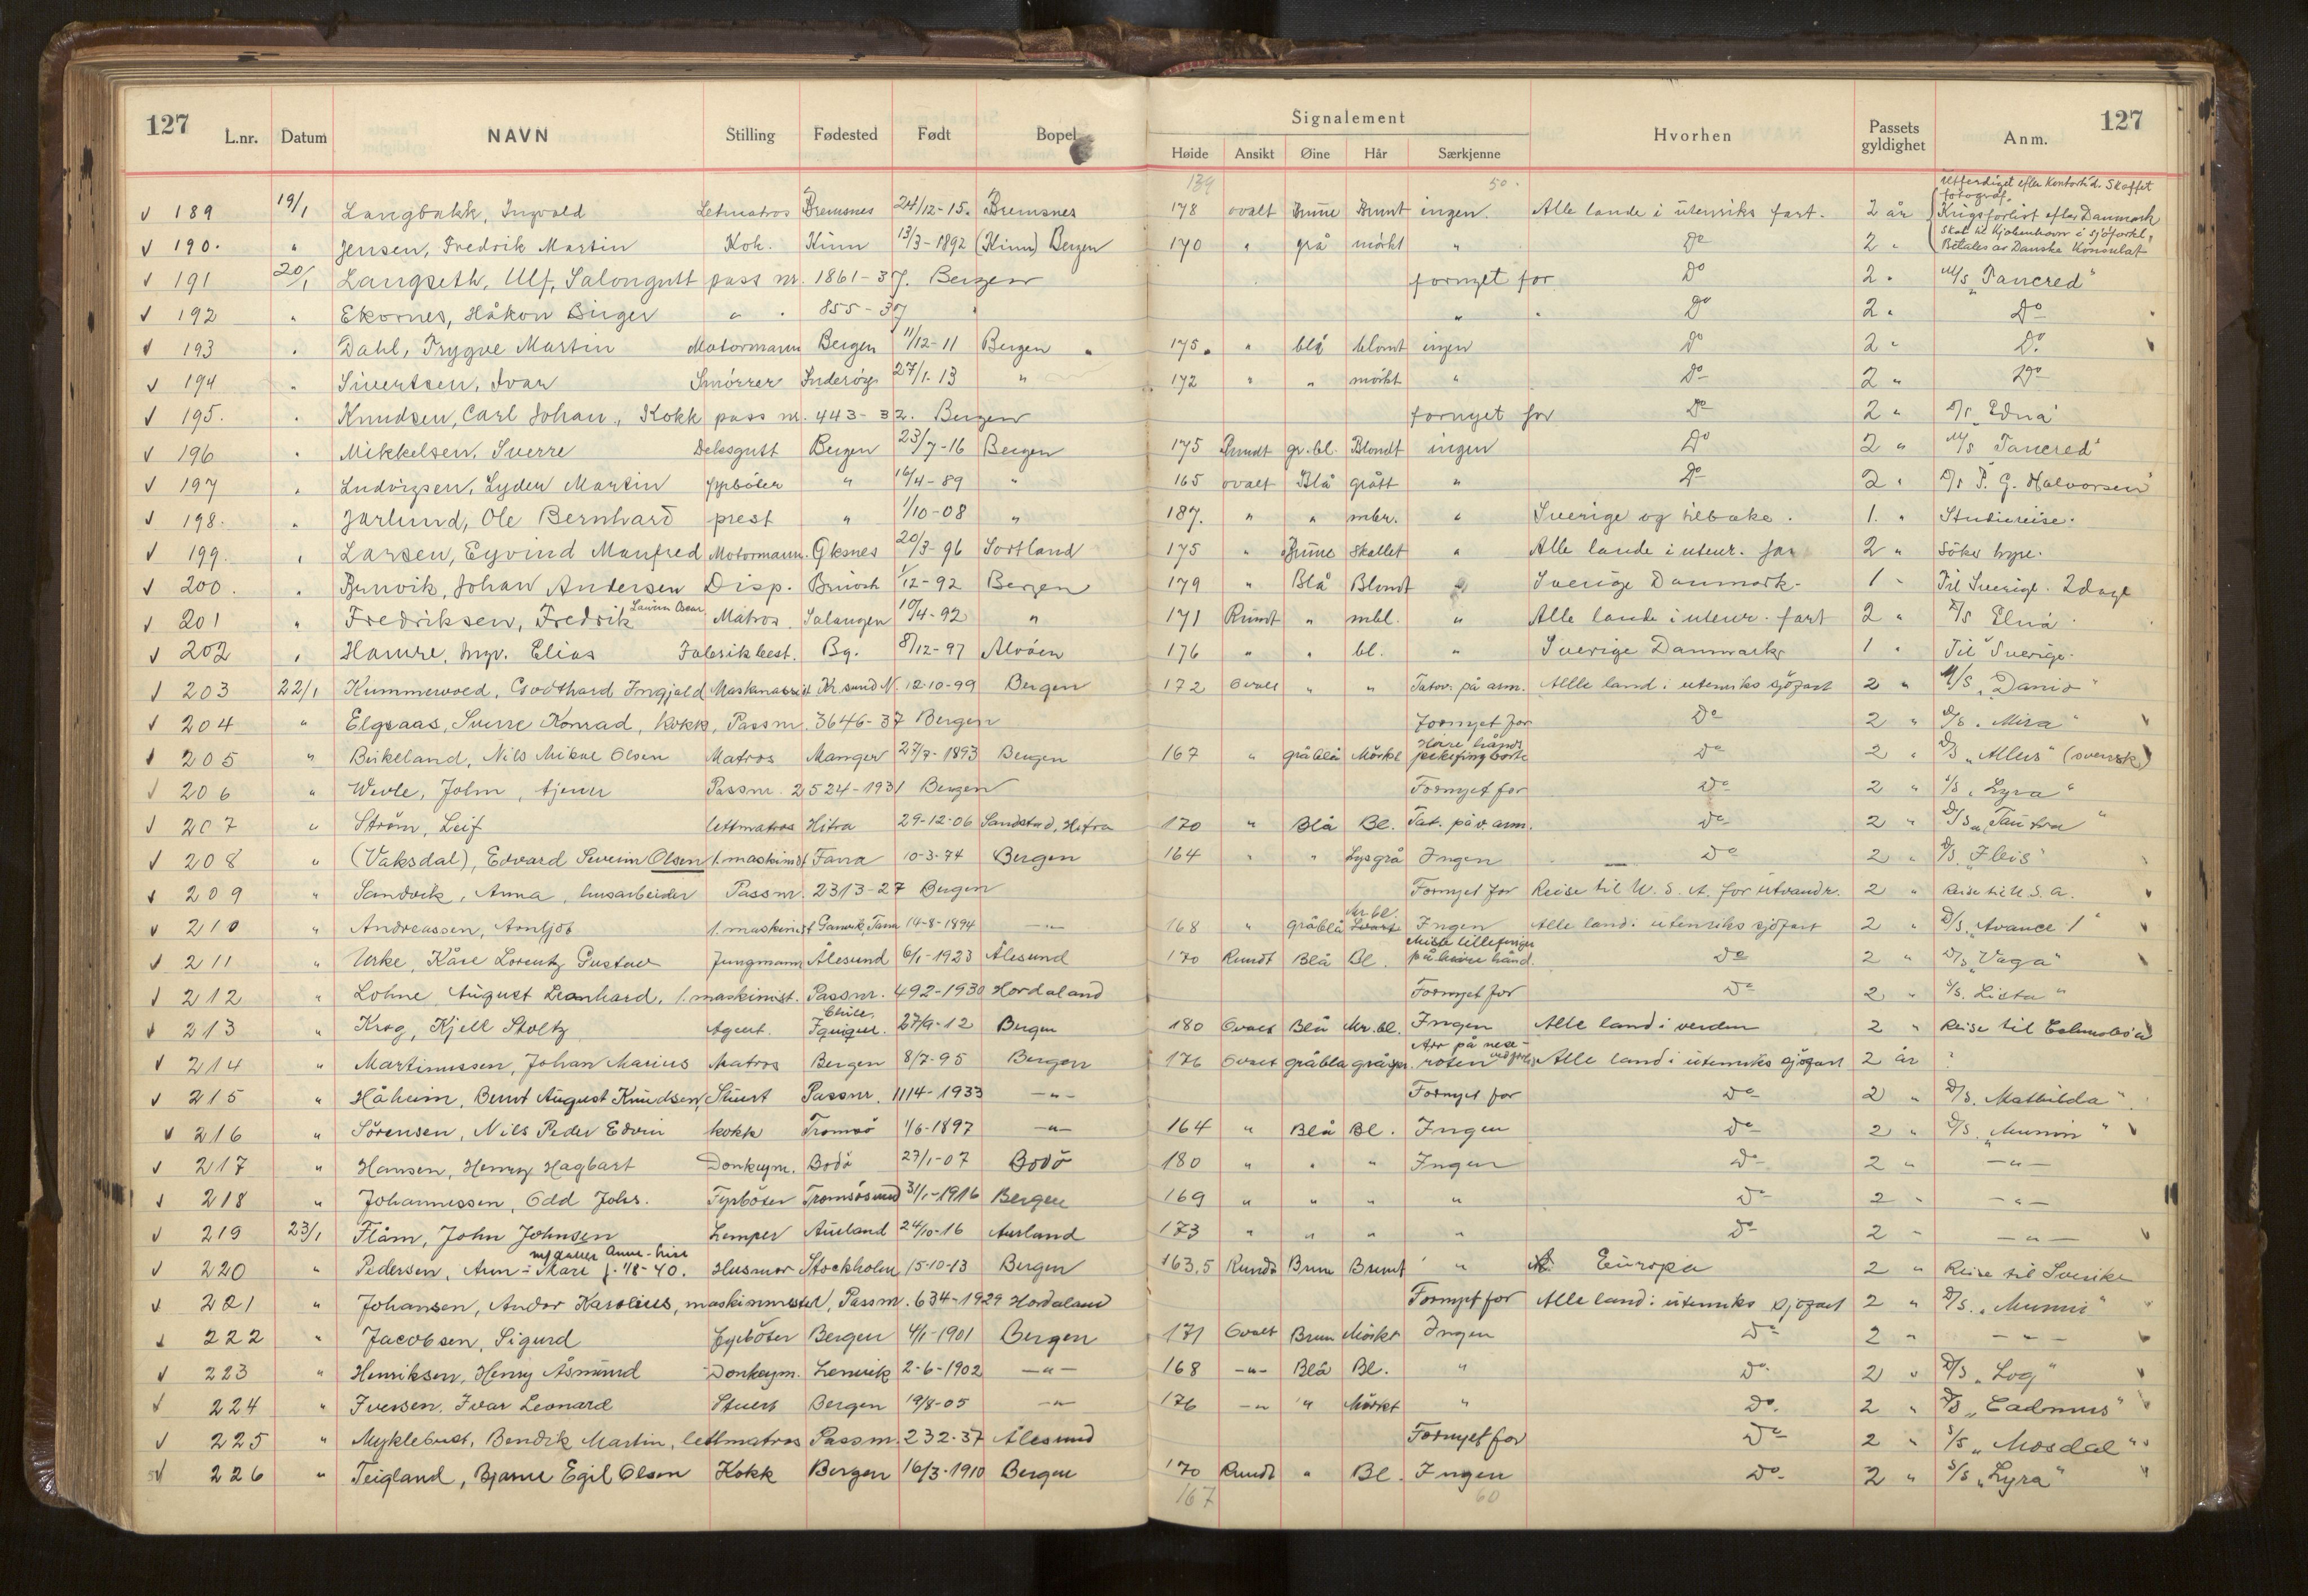 127 127
L.nr. Datum NAVN Stilling Fødested Født Bopel Signalement Hvorhen Passets gyldighet Anm.
Høide Ansikt Øine Hår Særkjenne
139 50.
189 19/1 Langbakk, Ingvald Letmatros Bremsnes 24/12-15. Bremsnes 178 ovalt Brune Brunt ingen. Alle lande i utenriks fart. 2 år Utferdiget efter Kontortid. Skaffet fotograf. Krigsforlist efter Danmark
190. " Jensen, Fredrik Martin Kok. Kinn 13/3-1892 (Kinn) Bergen 170 " grå mörkt " Do 2 " Skal til Kjöbenhavn i sjöforkl. Betales av Danske Konsulat
191 20/1 Langseth, Ulf, Salongutt pass nr. 1861-37. Bergen fornyet for Do 2 " M/S "Tancred"
192 " Ekornes, Håkon Birger " " 855-37 " " " Do 2 " Do
193 " Dahl, Trygve Martin Motormann Bergen 11/12-11 Bergen 175. " blå blondt ingen Do 2 " Do.
194 " Sivertsen, Ivar Smörrer Inderöy 27/1-13 " 172 " " mörkt " Do 2 " Do
195. " Knudsen, Carl Johan, Kokk pass nr. 443-32. Bergen fornyet for Do 2 " D/S "Edna"
196 " Mikkelsen, Sverre Deksgutt Bergen 23/7-16 Bergen 175 Rundt gr.bl. Blondt ingen Do 2 " M/S Tancred"
197 " Ludvigsen, Lyder Martin fyrböter " 16/4-89 " 165 ovalt Blå grått " Do 2 " D/S P. G. Halvorsen"
198. " Jarlund, Ole Bernhard prest " 1/10-08 " 187. " " mbr. " Sverige og tilbake. 1. " Studiereise.
199. " Larsen, Eyvind Manfred Motormann. Øksnes 20/3-96 Sortland 175 " Brune skallet " Alle lande i utenr. fart 2 " Söker hyre.
200. " Johan Andersen Disp. 1/12-92 Bergen 179 " Blå Blondt " Sverige Danmark. 1 " Til Sverige. 2 dage
201 " Fredriksen, Fredrik Laurin Oscar Matros. Salangen 10/4-92 " 171 Rundt " mbl. " Alle lande i utenr. fart 2 " D/S Elna
202 " Hamre, Ingv. Elias Fabrikbest. Bg. 8/12-97 Alvöen 176 " " bl. " Sverige Danmark 1 " Til Sverige.
203 22/1 Kummervold, Godthard Ingjald Maskinassist Kr.sund N. 12-10-99 Bergen 172 Ovalt " " Tatov. på arm. Allle land i utenriks sjöfart 2 " M/S "Danio"
204 " Elgsaas, Sverre Konrad, kokk, Passnr. 3646-37 Bergen Fornyet for Do 2 " D/S "Mira"
205 " Birkeland, Nils Mikal Olsen Matros Manger 27/7-1893 Bergen 167 " gråblå Mörkt Höire hånds pekefing. borte Do 2 " D/S "Allus" (svensk)
206 " Wevle, John, tjener Passnr. 2524-1931 Bergen Fornyet for Do 2 " S/S "Lyra"
207 " Ström, Leif lettmatros Hitra 29-12-06 Sandstad, Hitra 170 " Blå Bl. Tat. på v. arm. Do 2 " D/S "Tautra"
208 " (Vaksdal), Edvard Severin Olsen 1. maskinist Fana 10-3-74 Bergen 164 " " Lysgrå Ingen Do 2 " D/S "Fleis"
209 " Sandvik, Anna, husarbeider Passnr. 2313-27 Bergen Fornyet for Reise til U.S.A. for utvandr. 2 " Reise til U.S.A.
210 " Andreassen, Arnljot 1. maskinist Gamvik, Tana 14-8-1894 -"- 168 " gråblå Svart Mr. bl. Ingen Alle land i utenriks sjöfart 2 " D/S "Avance 1"
211 " Urke, Kåre Lorentz Gustav Jungmann Ålesund 6/1-1923 Ålesund 170 Rundt Blå Bl. Miste lillefinger på höire hånd. Do 2 " D/S "Vaga"
212 " Lohne August Leonhard, 1. maskinist. Passnr. 492-1930 Hordaland Fornyet for Do 2 " S/S. Lista"
213 " Krog, Kjell Stoltz Agent. Chile, Iquique. 27/9-12 Bergen 180 Ovalt Blå Mr.bl. Ingen Alle land i verden 2 " Reise til Columbia
214 " Martinussen, Johan Marius Matros Bergen 8/7-95 Bergen 176 Ovalt gråblå gråspr. Arr på neseroten Alle land i utenriks sjöfart 2 år ?
215 " Håheim, Bernt August Knudsen, Stuert Passnr. 1114-1933 -"- Fornyet for Do 2 " D/S. Mathilda"
216 " Sörensen, Nils Peder Edvin kokk Tromsö 1/6-1897 -"- 164 " Blå Bl. Ingen Do 2 " D/S. "Munin"
217 " Hansen, Henry Hagbart Donkeym. Bodö 27/1-07 Bodö 180 " " " Ingen Do 2 " -"-
218 " Johannessen, Odd Johs. Fyrböter Tromsösund 31/1-1916 Bergen 169 " " " " Do 2 " -"-
219 23/1 Flåm, John Johnsen Lemper Aurland 24/10-16 Aurland 173 " " " " Do 2 " -"-
220 " Pedersen, Ann-Mari m/datter Anne-Lise f. 1/8-40. Husmor Stockholm 15-10-13 Bergen 163,5 Rundt Brun Brunt " Europa 2 " Reise til Sverike
221 " Johansen, Andor Karolius, maskinmester, Passnr. 634-1929 Hordaland Fornyet for Alle land i utenriks sjöfart 2 " D/S. "Munin"
222 " Jacobsen, Sigurd fyrböter Bergen 4/1-1901 Bergen 171 Ovalt Brun Mörkt Ingen Do 2 " -"-
223 " Henriksen, Henry Åsmund Donkeym. Lenvik 2-6-1902 -"- 168 -"- Blå Bl. " Do. 2 " D/S "Log"
224 " Iversen, Ivar Leonard Stuert Bergen 19/8-05 -"- 176 -"- " Mörkt " Do. 2 " D/S "Cadmus"
225 " Myklebust, Bendik Martin, lettmatros Passnr. 232-37 Ålesund Fornyet for Do 2 " S/S "Mosdal"
226 " Teigland, Bjarne Egil Olsen Kokk Bergen 16/3-1910 Bergen 170 Rundt " Bl. Ingen Do. 2 " S/S "Lyra"
167 60